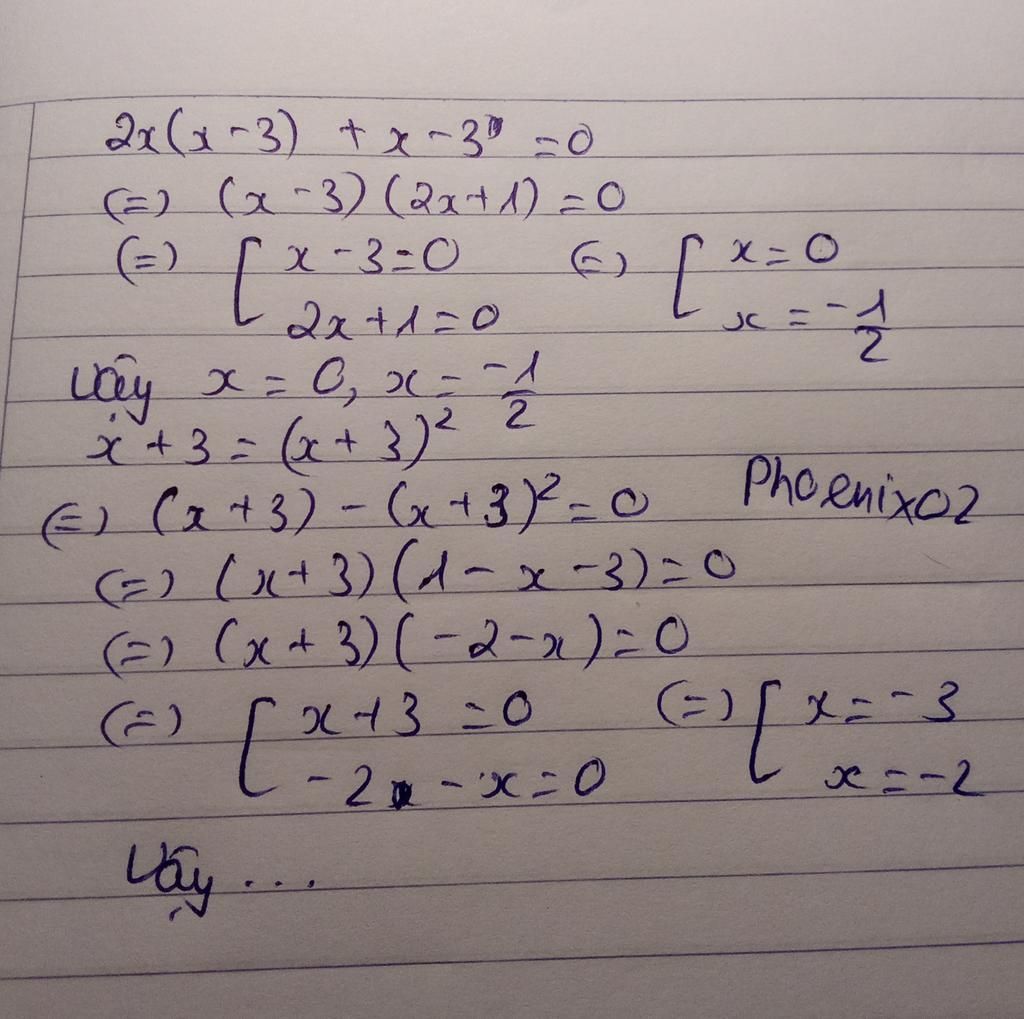 2x(x-3) + x-3 = 0
(=) (x-3)(2x+1) = 0
(=) [ x-3=0 (=) [ x=0
2x+1=0 x = -1/2
Vậy x = 0, x = -1/2
x+3 = (x+3)²
(=) (x+3) - (x+3)² = 0
Phoenix02
(=) (x+3)(1-x-3) = 0
(=) (x+3)(-2-x) = 0
(=) [ x+3 = 0 (=) [ x = -3
-2 - x = 0 x = -2
Vậy ...